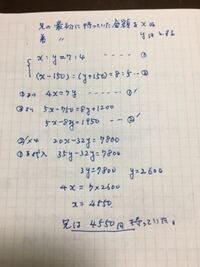 兄の最初に持っていた金額を x 円
弟 〃 y 円とする
x : y = 7 : 4 ------ ①
(x-150) : (y+150) = 8 : 5 --- ②
①より 4x = 7y ------ ①'
②より 5x-750 = 8y+1200
5x-8y = 1950 --- ②'
②'×4 20x-32y = 7800
①'を代入 35y-32y = 7800
3y = 7800 y = 2600
4x = 7×2600
x = 4550
兄は 4550円 持っていた。